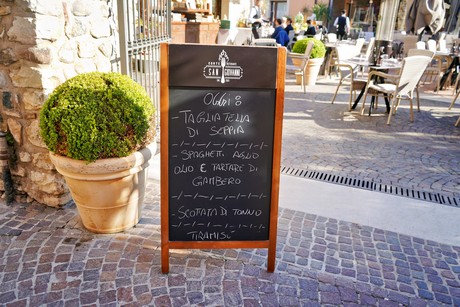 SAN
GIOVANNI
OGGI:
- TAGLIATELLA
DI SEPPIA
- SPAGHETTI AGLIO
OLIO E TARTARE DI
GAMBERO
- SCOTTATA DI TONNO
TIRAMISÙ